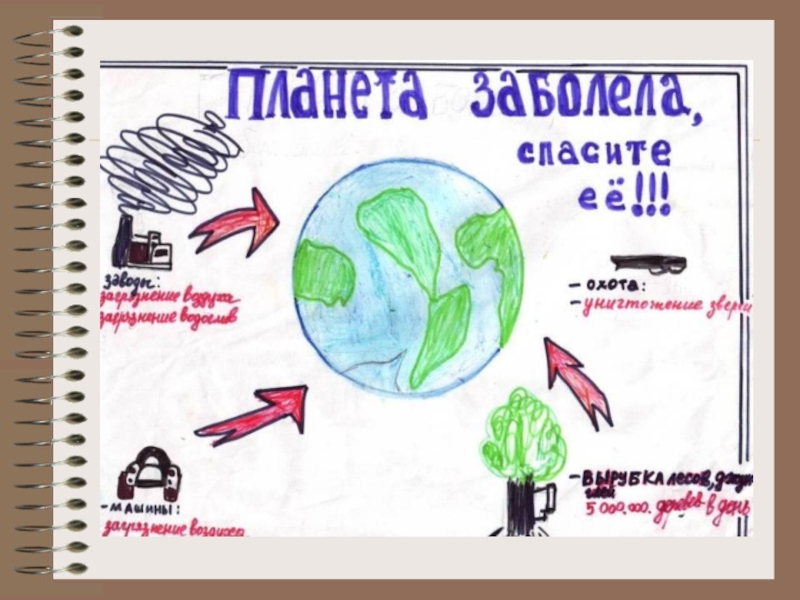 Планета заболела,
спасите
её!!!
заводы:
загрязнение воздуха
загрязнение водоемов
- охота:
- уничтожение звере
- машины:
загрязнение воздуха
- ВЫРУБКА лесов, джун
глей
5 000.000. деревьев в день